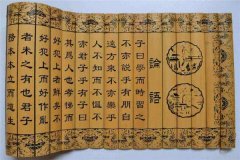 論語
子曰學而時習之
不亦說乎有朋自
遠方來不亦樂乎
人不知而不慍不
亦君子乎有子曰
其為人也孝悌而
好犯上者鮮矣不
好犯上而好作亂
者未之有也君子
務本本立而道生